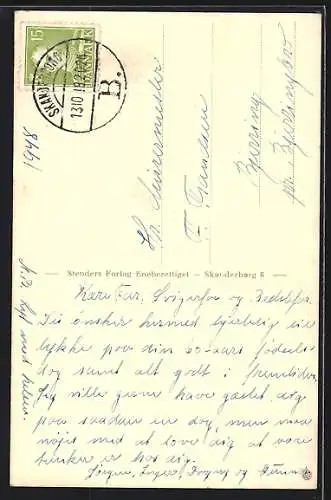 15
DANMARK
SKANDERBORG
1310 1821
B.
1948
Hr. Murermester
Bjerring
pr. Bjerringbro
Stenders Forlag Eneberettiget - Skanderborg 6
Kære Far, Svigerfar og Bedstefar.
Til ønsker hermed hjertelig til
lykke paa din 60-aars fødsels-
dag samt alt godt i fremtiden.
Jeg ville gerne have gæstet dig
paa saadan en dag, men maa
nøjes med at love dig at vore
tanker er hos dig.
Jørgen, Inger, og